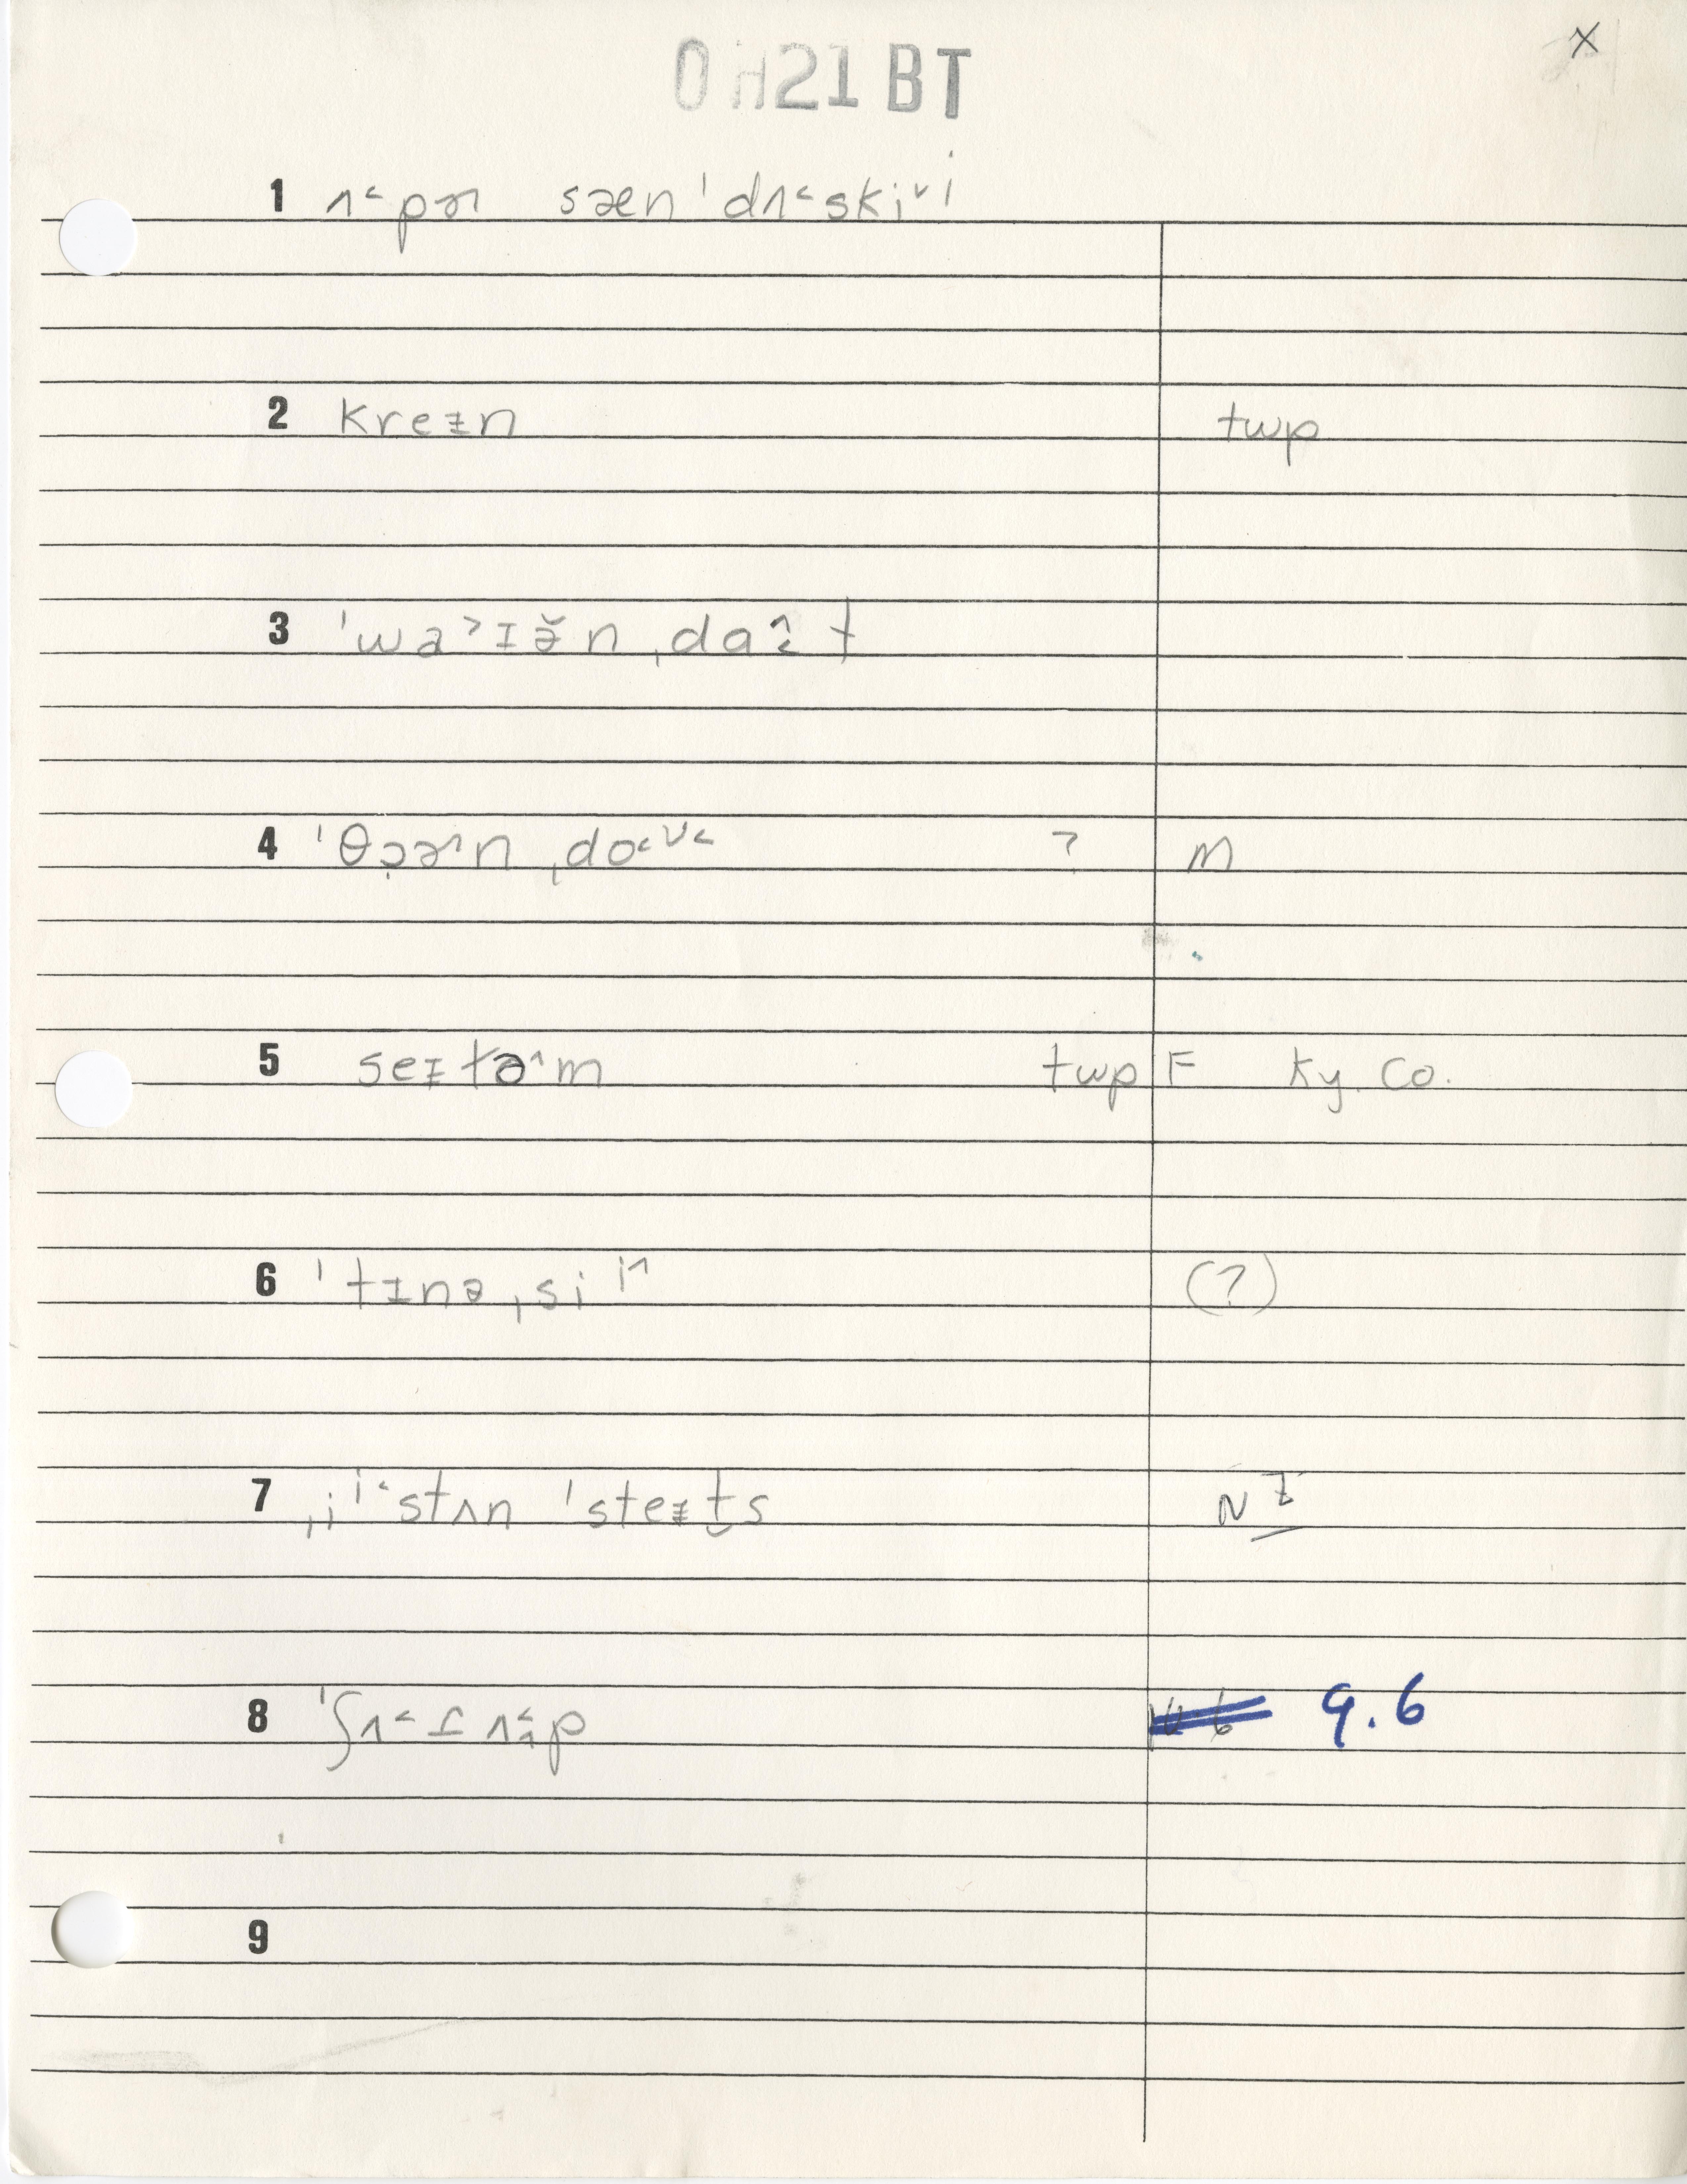 OH21BT
x
1 ʌ˂pɚ sæn ˈdʌ˂skiᵛi
2 kreɪn twp
3 ˈwa˃ɪə̆n ˌdaˆ˂t
4 ˈθɔ̣ɚ^n ˌdo˂ᵛ˂ ? m
5 seɪtə^m twp F Ky. Co.
6 ˈtɪnə ˌsiⁱ^ (?)
7 ˌiⁱ˂stʌn ˈsteɪt̬s N I
8 9.6
9